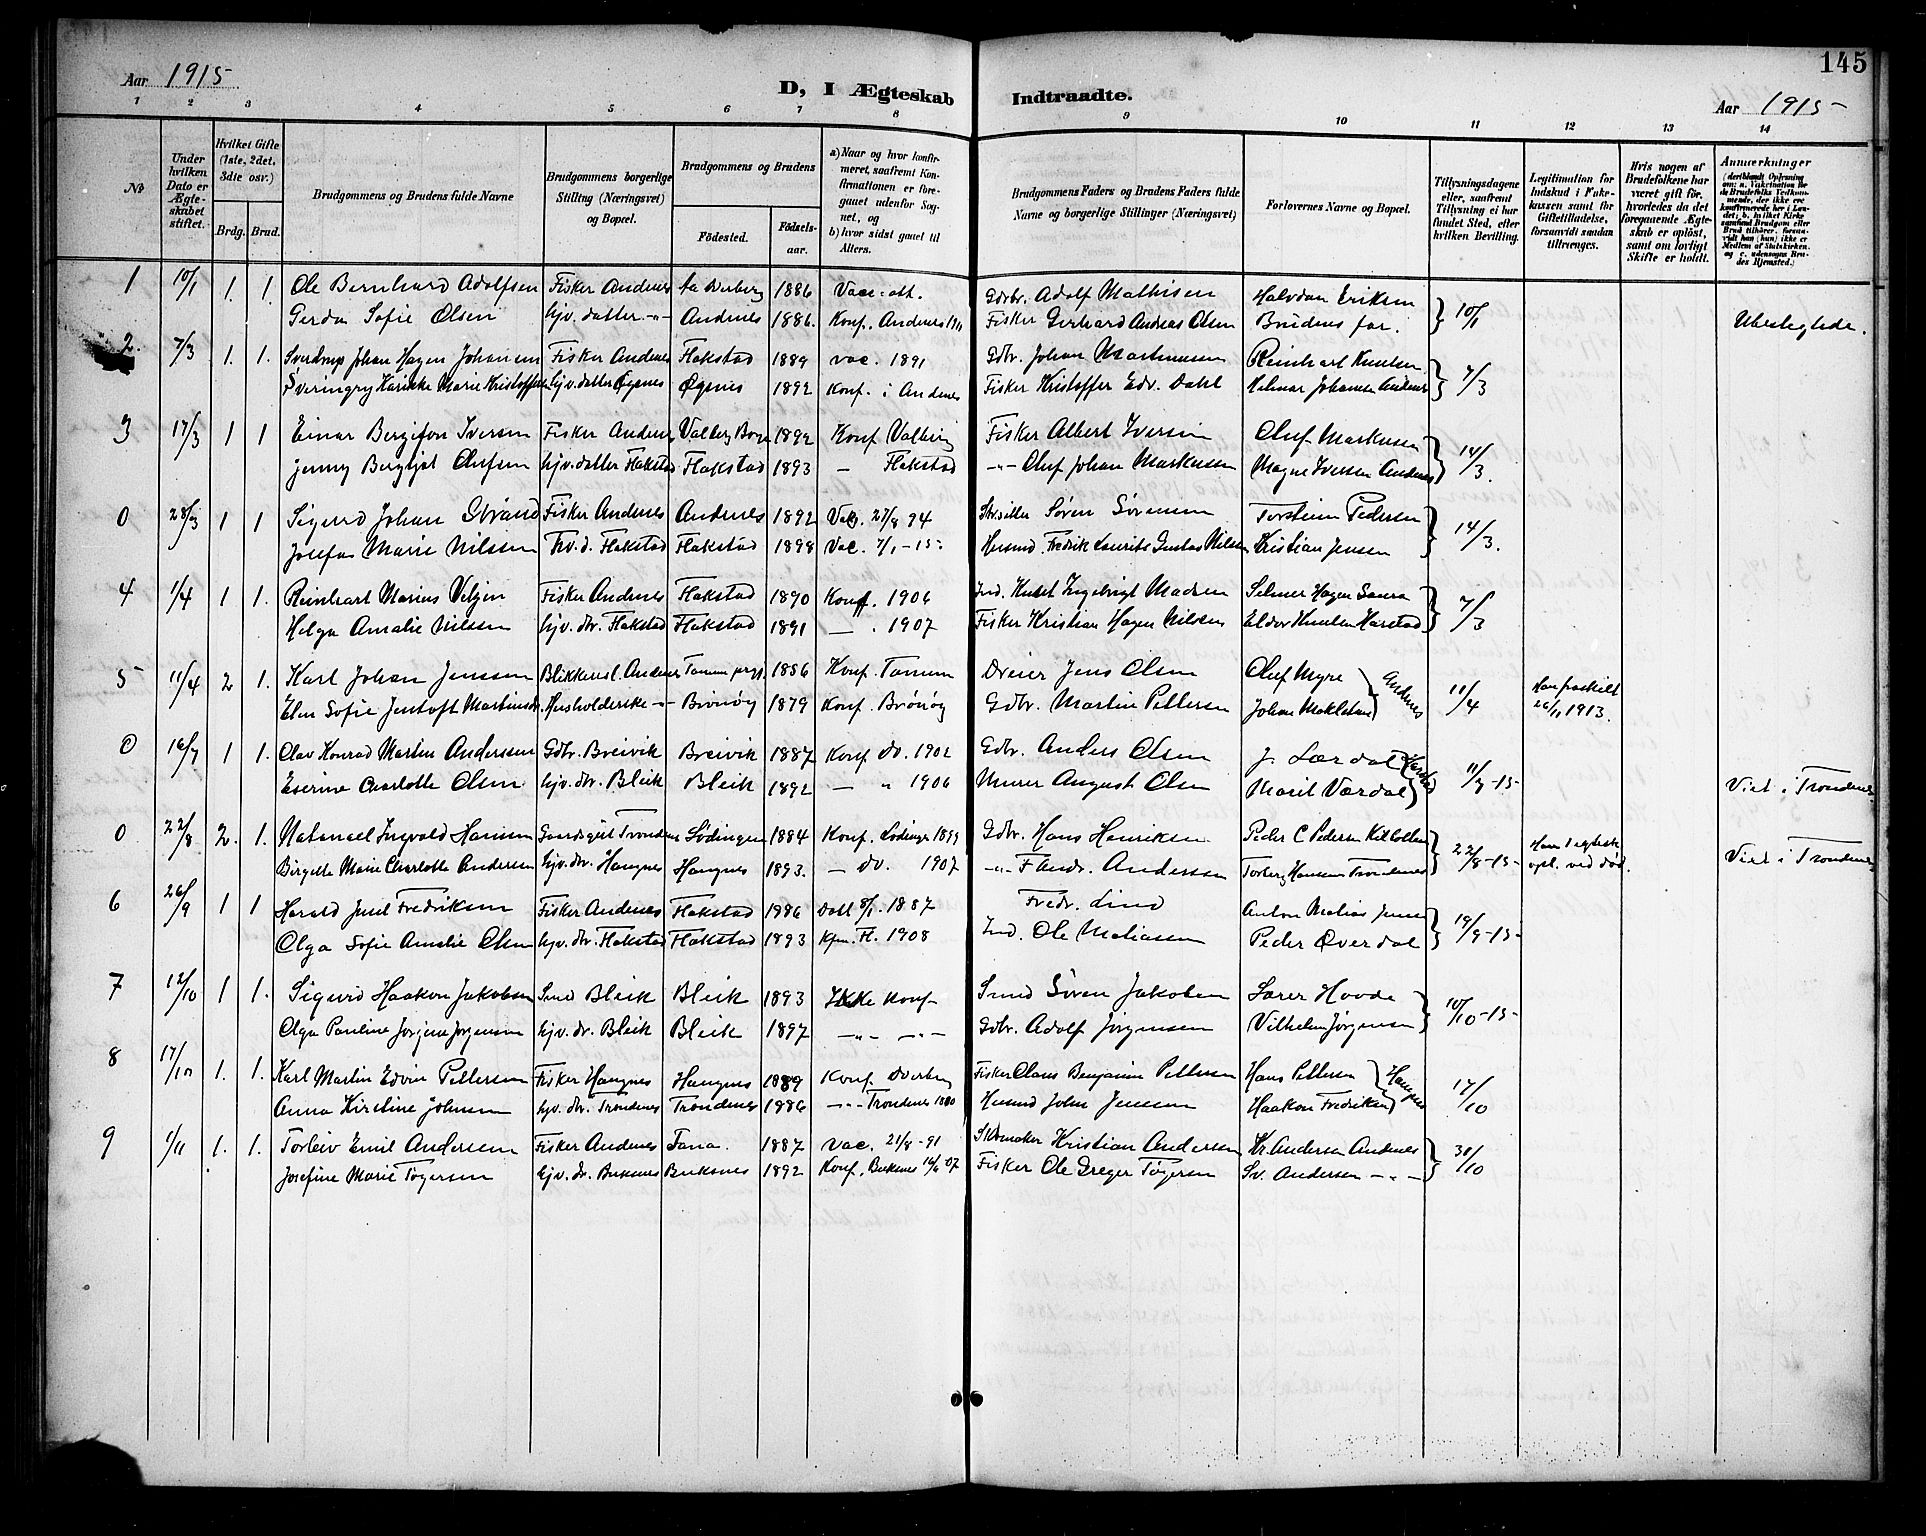 145
Aar 1915
D, I Ægteskab Indtraadte.
Aar 1915
1 2 3 4 5 6 7 8 9 10 11 12 13 14
№
Under hvilken Dato er Ægteskabet stiftet.
Hvilket Gifte (1ste, 2det, 3die osv.)
Brdg. Brud.
Brudgommens og Brudens fulde Navne
Brudgommens borgerlige Stilling (Næringsvei) og Bopæl.
Brudgommens og Brudens
Fødested. Fødselsaar.
a) Naar og hvor konfirmeret, saafremt Konfirmationen er foregaaet udenfor Sognet, og
b) hvor sidst gaaet til Alters.
Brudgommens Faders og Brudens Faders fulde Navne og borgerlige Stillinger (Næringsvei)
Forlovernes Navne og Bopæl.
Tillysningsdagene eller, saafremt Tillysning ei har fundet Sted, efter hvilken Bevilling.
Legitimation for Indskud i Enkekassen samt for Giftetilladelse, forsaavidt saadan tiltrænges.
Hvis nogen af Brudefolkene har været gift før, hvorledes da det foregaaende Ægteskab er opløst, samt om lovligt Skifte er holdt.
Anmærkninger
1 10/1 1. 1. Ole Bernhard Adolfsen Fisker Andenes 1886 Vac. att. Gdbr. Adolf Mathisen Halvdan Eriksen 10/1
Gerda Sofie Olsen Andenes 1886. Konf. Andenes Fisker Gerhard Andreas Olsen Brudens far. Ubeslegtede.
2. 7/3 1. 1. Sverdrup Johan Hagen Johansen Fisker Andenes Flakstad 1889 vac. 1891 Gdbr. Johan Martinussen Reinhart Knutsen 7/3
Marie Kristoffersen hjv. datter Øgsnes Øgsnes 1892 Konf. i Andenes Fisker Kristoffer Edv. Dahl Hilmar Johansen Andenes
3 17/3 1 1 Einar Bergifon Iversen Fisker Andenes Valberg 1892 Konf. Fisker Albert Iversen Oluf Markusen 14/3
Jenny Bergljot Olufsen hjv. datter Flakstad Flakstad 1893 — Flakstad -„- Oluf Johan Markussen Magne Iversen Andenes
0 28/3 1 1 Sigurd Johan Strand Fisker Andenes Andenes 1892 Vac. 27/8 94 Søren Sørensen Torstein Pedersen 14/3.
Josefa Marie Nilssen Flakstad Flakstad 1898 Vac. 7/1 - 15 Husmd. Fredrik Laurits Gustav Nilsen Kristian Jensen
4 1/4 1 1. Reinhart Marius Fisker Andenes Flakstad 1890 Konf. 1906 Ingebrigt Madsen Selmer Hagen 7/3
Helga Amalie Nilssen hjv. dtr. Flakstad Flakstad 1891 — . 1907 Fisker Kristian Hagen Nilsen Eldor Knutsen Harstad
5 11/4 2 1. Karl Johan Jenssen Andenes 1886 Konf. Tanum Dreier Jens Olsen Oluf Myre Andenes 11/4 Han fraskilt
Elen Sofie Jentoft Husholderske -„- Brønøy 1879 Konf. Brønøy Gdbr. Martin Pettersen Johan 26/11 1913.
0 16/7 1 1. Olav Konrad Martin Anderssen Gdbr. Breivik Breivik 1887 Konf. do. 1902 Gdbr. Anders Olsen J. Lærdal 11/7-15
Eserine Charlotte Olsen hjv. dtr. Bleik Bleik 1892 — „ 1906 Murer August Olsen Marit Værdal Viet i Trondenes
0 22/8 2. 1. Natanael Ingvald Hansen Lødingen 1884 Konf. Lødingen 1899 Gdbr. Hans Henriksen Peder C Pedersen 22/8-15 Hans 1 egtesk.
Birgitte Marie Charlotte Andersen hjv. dtr. Haugnes Haugnes 1893. — do. 1907 -„- Andr. Anderssen Torberg Hansen Trondenes opl. ved død. Viet i Trondenes
6 26/9 1 1 Harald Juul Fredriksen Fisker Andenes Flakstad 1886 8/1. 1887 Fredr. Lind Anton Matias Jensen 19/9-15
Olga Sofie Amalie Olsen hjv. dtr. Flakstad Flakstad 1893 Fl. 1908 Ind. Ole Matiassen Peder Overdal
7 12/10 1 1. Sigurd Haakon Jakobsen Smed Bleik Bleik 1893 Ikke konf. Smed Søren Jakobsen Lærer Hovde 10/10-15
Olga Pauline Jørgensen hjv. dr. Bleik Bleik 1897 -„- -„- Gdbr. Adolf Jørgensen Vilhelm Jørgensen
8 17/10 1. 1. Karl Martin Edvin Pettersen Fisker Haugnes Haugnes 1889 Konf. Dverberg Fisker Claus Benjamin Pettersen Hans Pettersen Haugnes 17/10
Anna Kirstine Johnsen hjv. dtr. Trondenes Trondenes 1886 -„- Trondenes Husmd John Jensen Haakon Fredriksen
9 1/11 1. 1. Torleiv Emil Andersen Fisker Andenes Tana. 1887 vac. 21/8-91 Skomaker Kristian Andersen Kr. Andersen Andenes 31/10
Josefine Marie Tøgersen hjv. dr. Buksnes Buksnes 1892 Konf. Buksnes 07 Fisker Ole Greger Tøgersen Sv. Andersen -„-